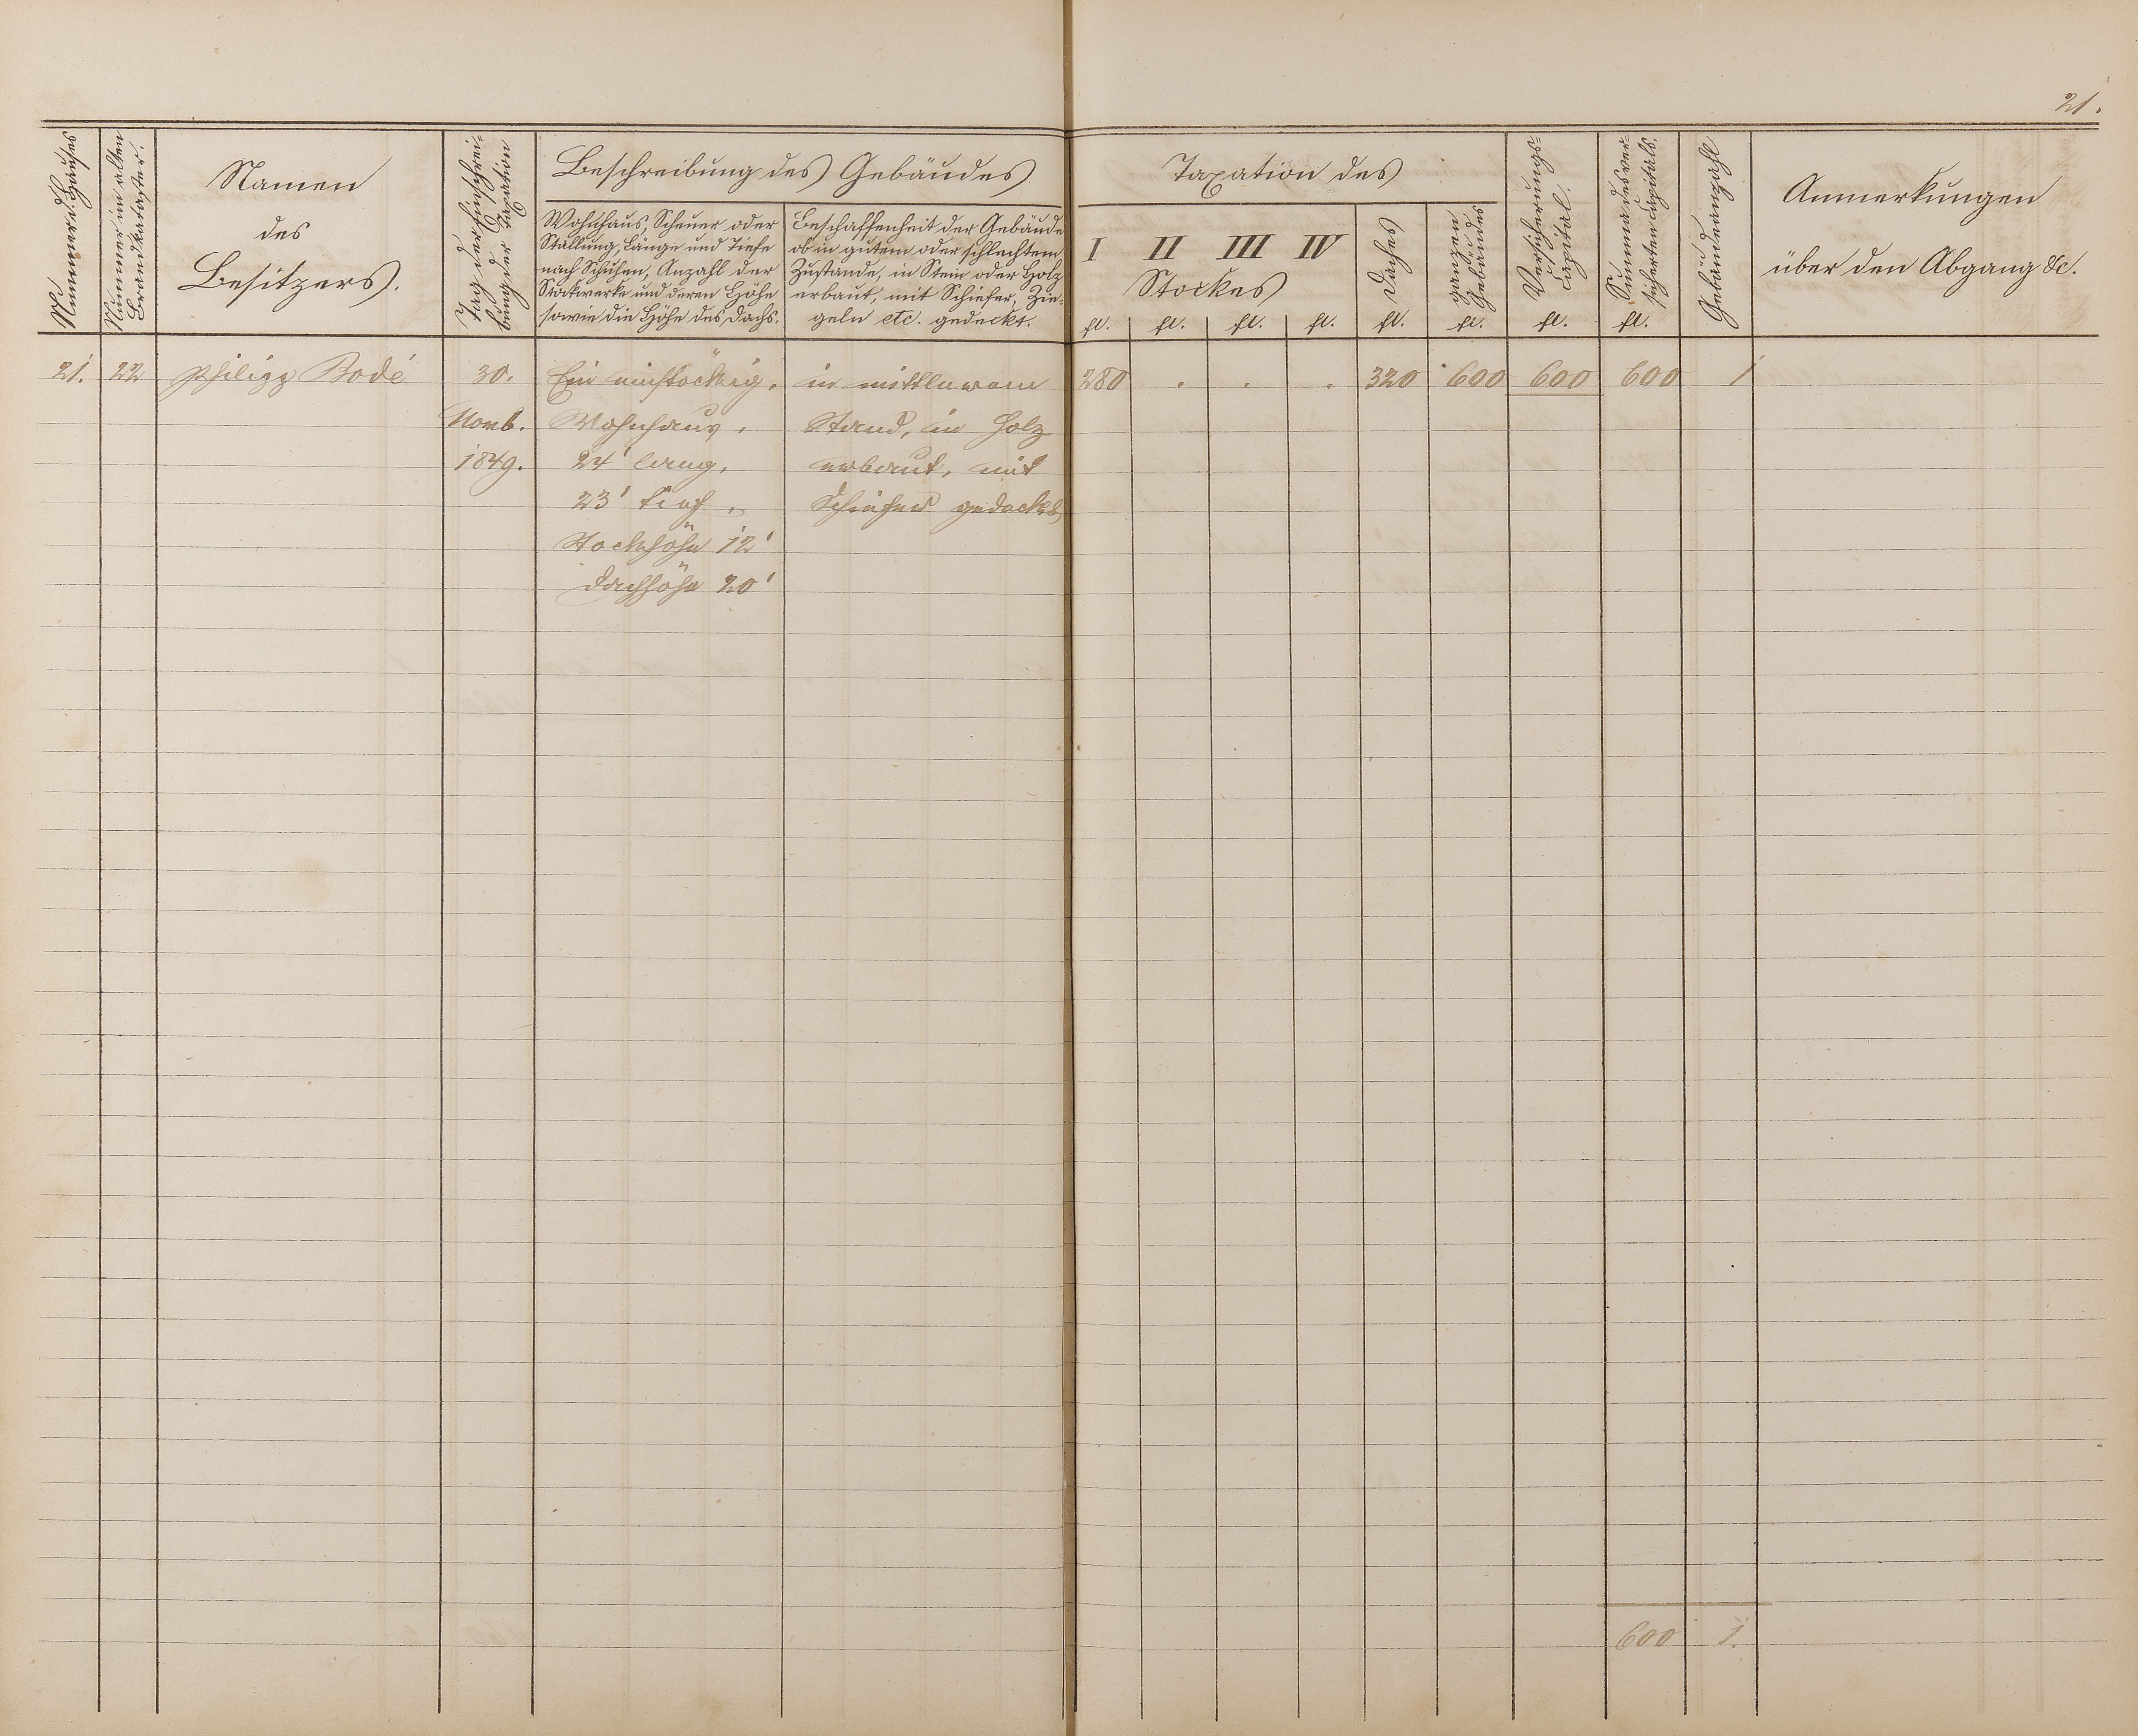 21.
Nummer d. Hauses
Nummer im alten
Brandkataster.
Namen
des
Besitzers.
Tag der Einschrei-
bung der Taxation
Beschreibung des Gebäudes
Wohnhaus, Scheuer oder
Stallung, Länge und Tiefe
nach Schuhen, Anzahl der
Stockwerke und deren Höhe
sowie die Höhe des Dachs.
Beschaffenheit der Gebäude
ob in gutem oder schlechtem
Zustande, in Stein oder Holz
erbaut, mit Schiefer, Zie-
geln etc. gedeckt.
Taxation des
I II III IV
Stockes
Daches
ganzen
Gebäudes
Versicherungs-
capital.
Summa des ver-
sicherten Capitals.
Gebäudeanzahl
Anmerkungen
über den Abgang &c.
fl. fl. fl. fl. fl. fl. fl. fl.
21. 22 Philipp Bodé 30. Ein einstöckig. in mittlerem 280 . . . 320 600 600 600 1
Novb. Wohnhaus. Stand, in Holz
1849. 24' lang, erbaut, mit
23' tief, Schiefer gedeckt
Stockhöhe 12'
Dachhöhe 20'
600 1.